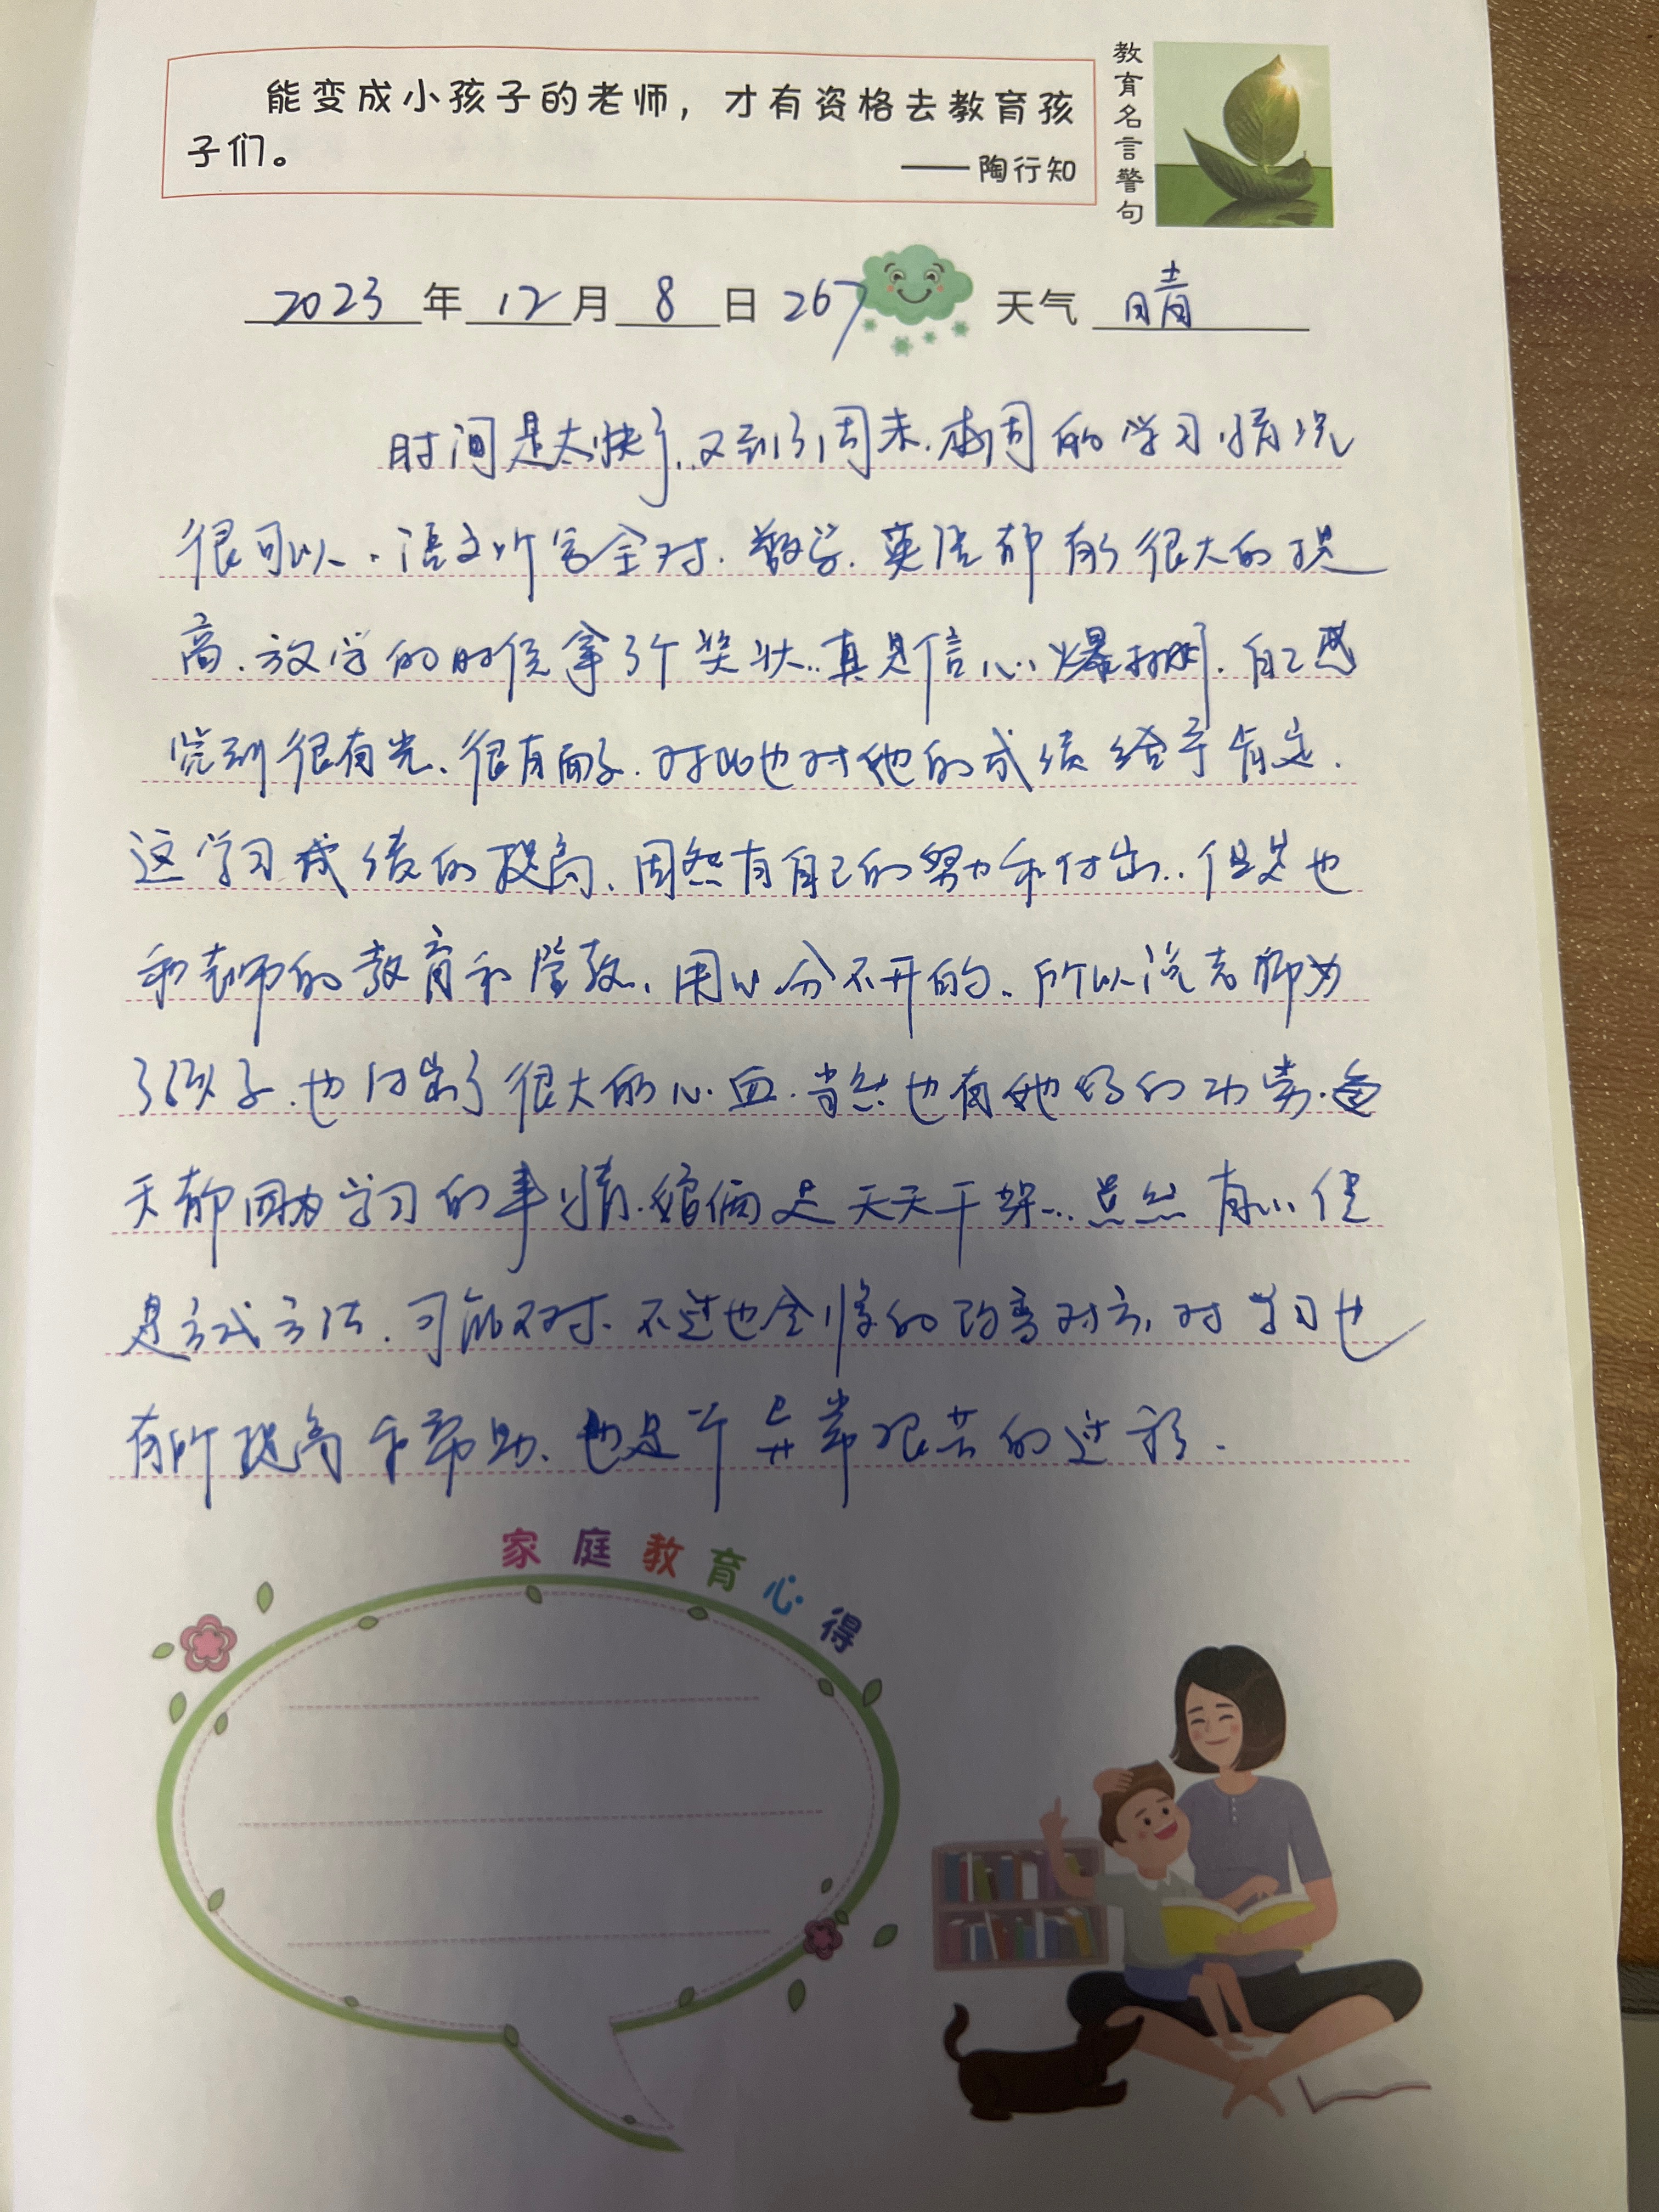 能变成小孩子的老师，才有资格去教育孩
子们。
——陶行知
教育名言警句
2023年12月8日 267 天气 晴
时间是太快了，又到了周末，本周的学习情况
很可以，语文听写全对，数学，英语都有了很大的提
高，放学的时候拿了个奖状，真是信心爆棚，自己感
觉到很有光，很有面子，对此也对她的成绩给予肯定，
这学习成绩的提高，固然有自己的努力和付出，但是也
和老师的教育和管教，用心分不开的，所以说老师为
了孩子，也付出了很大的心血，当然也有她妈的功劳，每
天都因为学习的事情，娘俩是天天干架，虽然有心，但
是方式方法，可能不对，不过也会慢的改变对方，对学习也
有所提高和帮助，也是一个异常艰苦的过程.
家庭教育心得